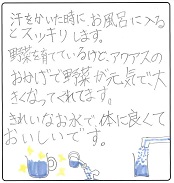 汗をかいた時に、お風呂に入る
とスッキリします。
野菜を育てているけど、アクアスの
おかげで野菜が元気で大
きくなってくれてます。
きれいなお水で、体に良くて
おいしいです。